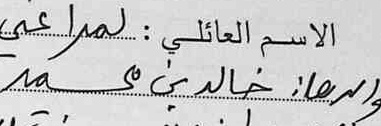 الاسم العائلي : لمراعي
والدها: خالد بن محمد